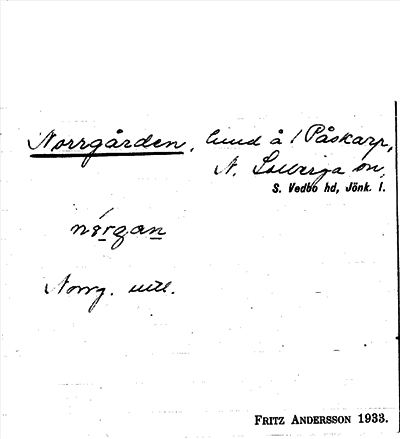 Norrgården, lund å 1 Påskarp,
N. Solberga sn,
S. Vedbo hd, Jönk. l.
nó̱rgaṉ
Norrg. uttl.
FRITZ ANDERSSON 1933.